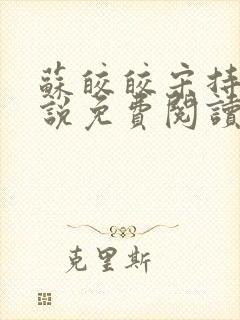 蘇皎皎宋持
說免費閱讀
克里斯